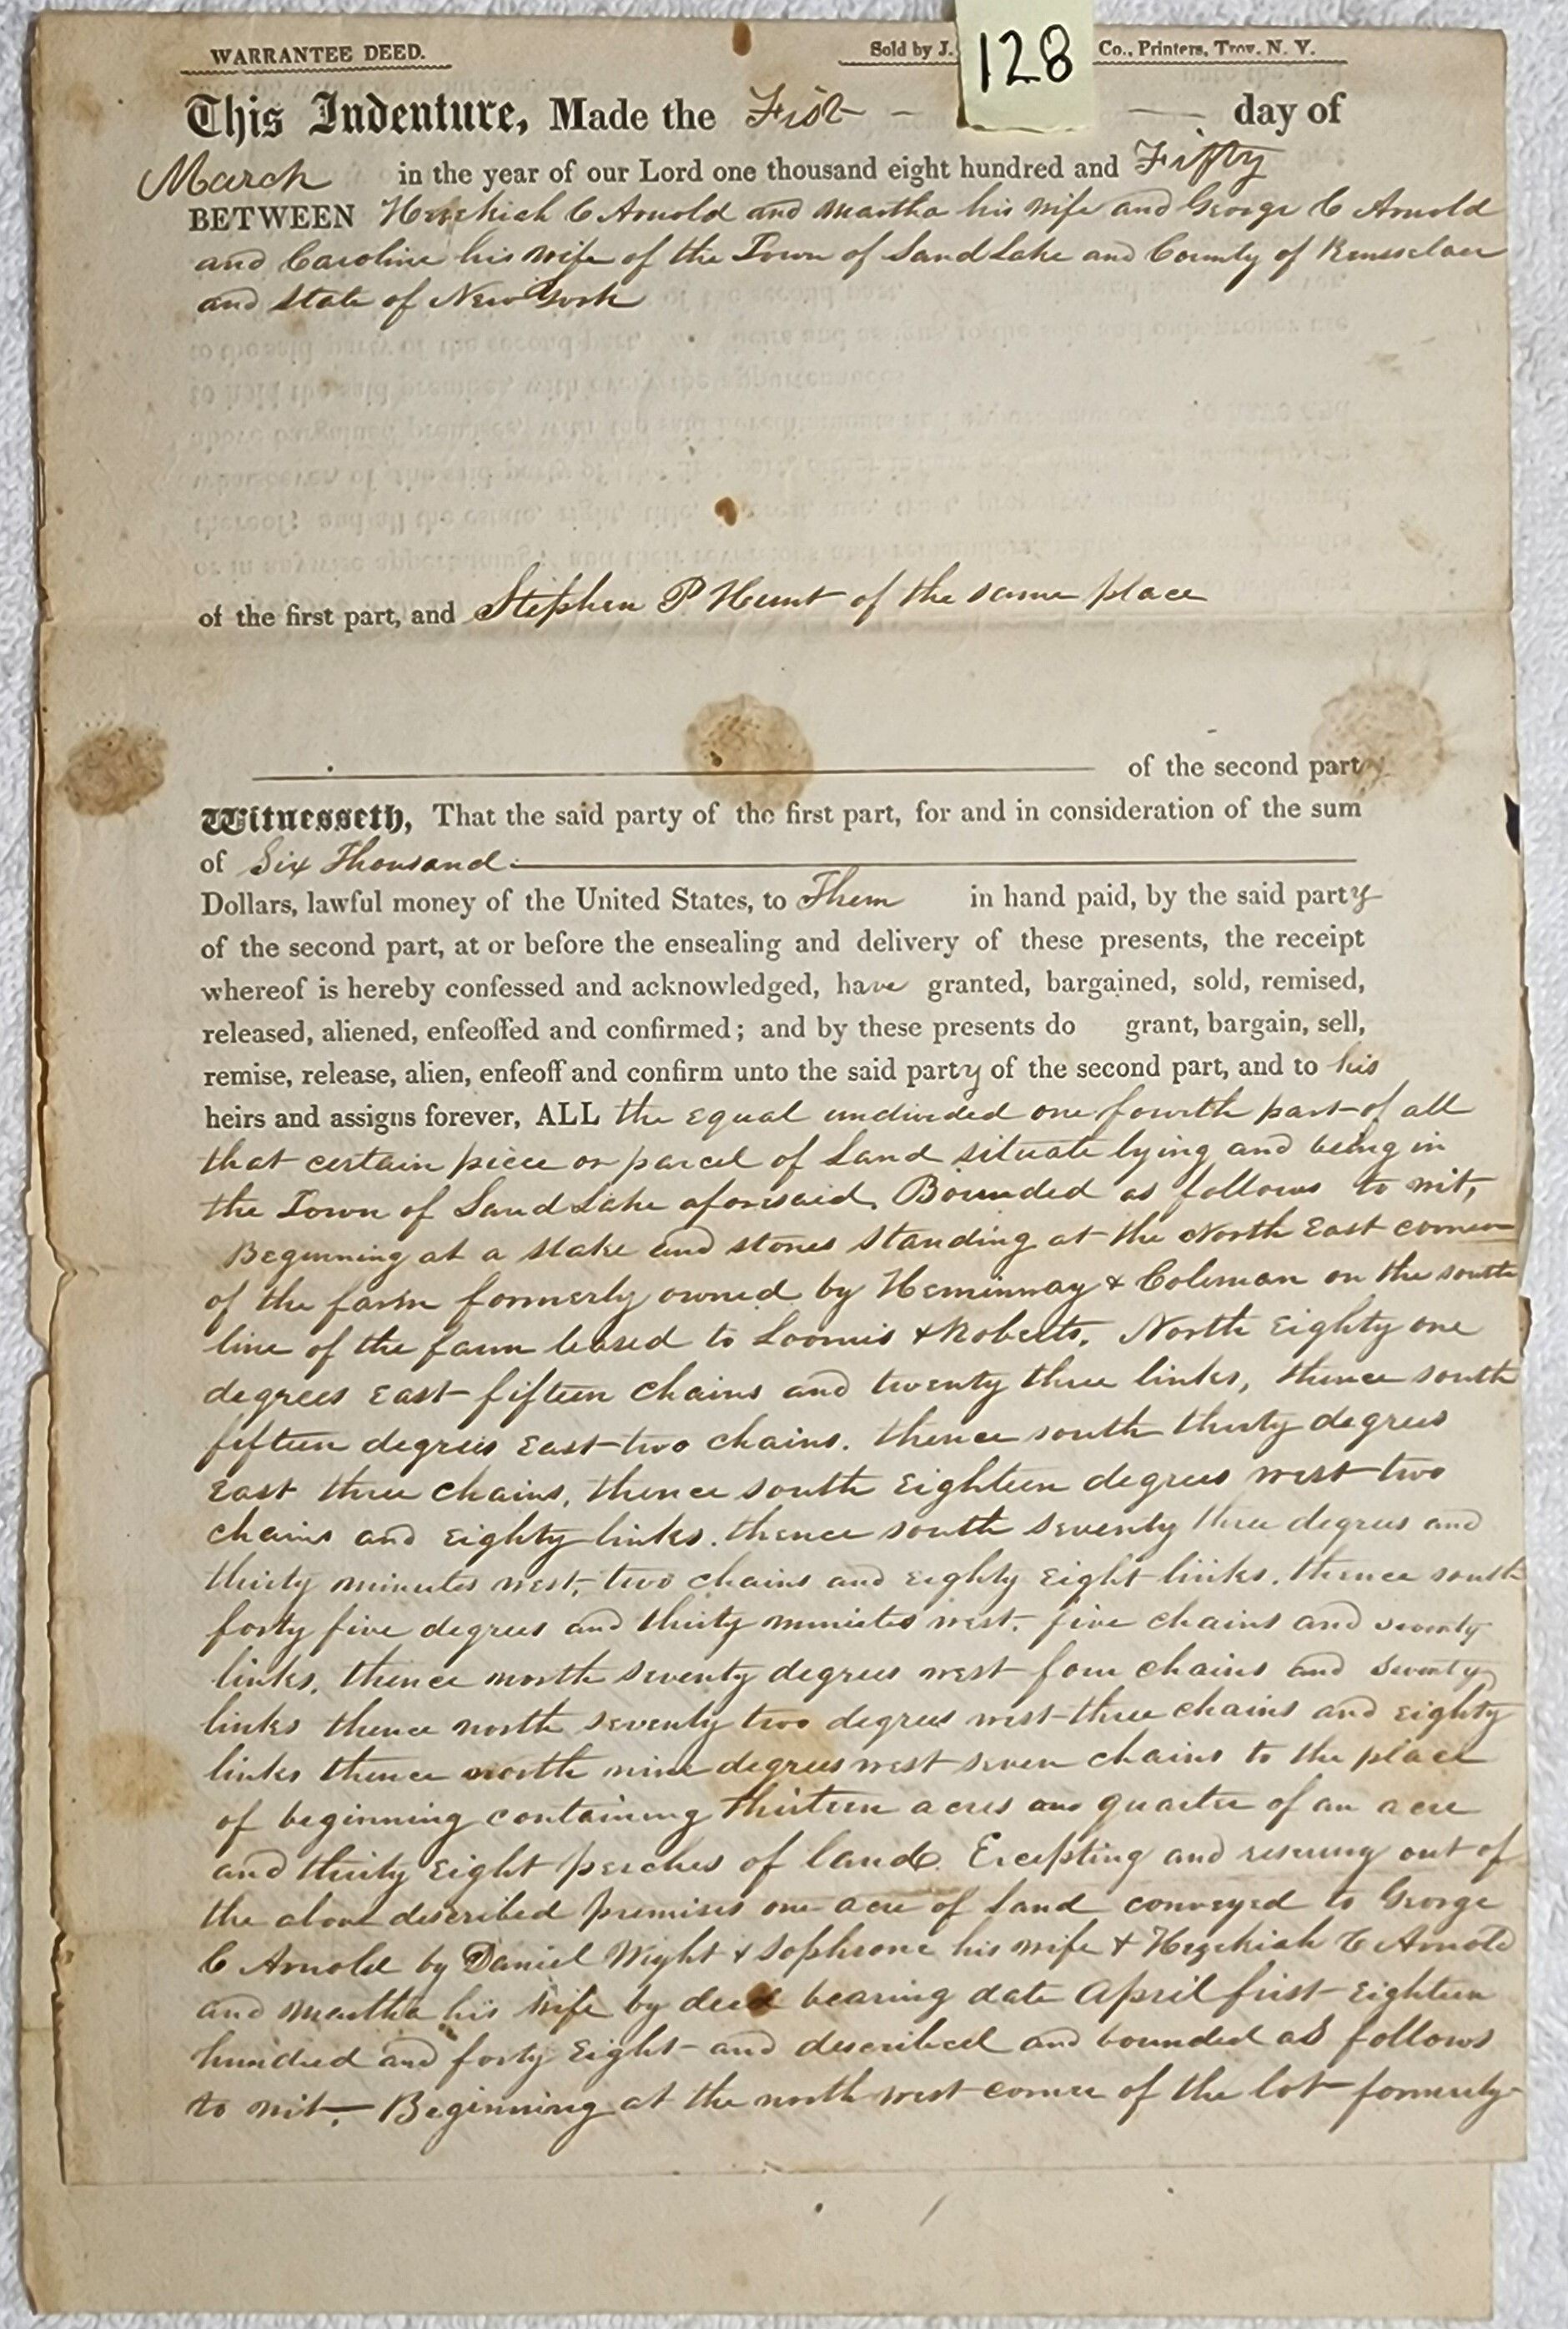 WARRANTEE DEED.
Sold by J.
Co., Printers, Troy, N. Y.
128
This Indenture, Made the First day of
March in the year of our Lord one thousand eight hundred and Fifty
BETWEEN Hezekiah C Arnold and Martha his wife and George C Arnold
and Caroline his wife of the Town of Sand Lake and County of Rensselaer
and State of New York
of the first part, and Stephen P Hunt of the same place
of the second party
Witnesseth, That the said party of the first part, for and in consideration of the sum
of Six Thousand
Dollars, lawful money of the United States, to Them in hand paid, by the said party
of the second part, at or before the ensealing and delivery of these presents, the receipt
whereof is hereby confessed and acknowledged, have granted, bargained, sold, remised,
released, aliened, enfeoffed and confirmed; and by these presents do grant, bargain, sell,
remise, release, alien, enfeoff and confirm unto the said party of the second part, and to his
heirs and assigns forever, ALL the equal undivided one fourth part of all
that certain piece or parcel of Land situate lying and being in
the Town of Sand Lake aforesaid. Bounded as follows to wit,
Beginning at a stake and stones standing at the North East corner
of the farm formerly owned by Heminway & Coleman on the south
line of the farm leased to Loomis & Roberts. North Eighty one
degrees East fifteen chains and twenty three links, thence south
fifteen degrees East two chains. thence south thirty degrees
East three chains, thence south Eighteen degrees west two
chains and Eighty links. thence south seventy three degrees and
thirty minutes west, two chains and eighty Eight links. thence south
forty five degrees and thirty minutes west. five chains and seventy
links, thence north seventy degrees west four chains and seventy
links thence north seventy two degrees west three chains and eighty
links thence north nine degrees west seven chains to the place
of beginning containing thirteen acres one quarter of an acre
and thirty Eight perches of land. Excepting and reserving out of
the above described premises one acre of Land conveyed to George
C Arnold by Daniel Wight & Sophrone his wife & Hezekiah C Arnold
and Martha his wife by deed bearing date April first Eighteen
hundred and forty Eight and described and bounded as follows
to wit, Beginning at the north west corner of the lot formerly